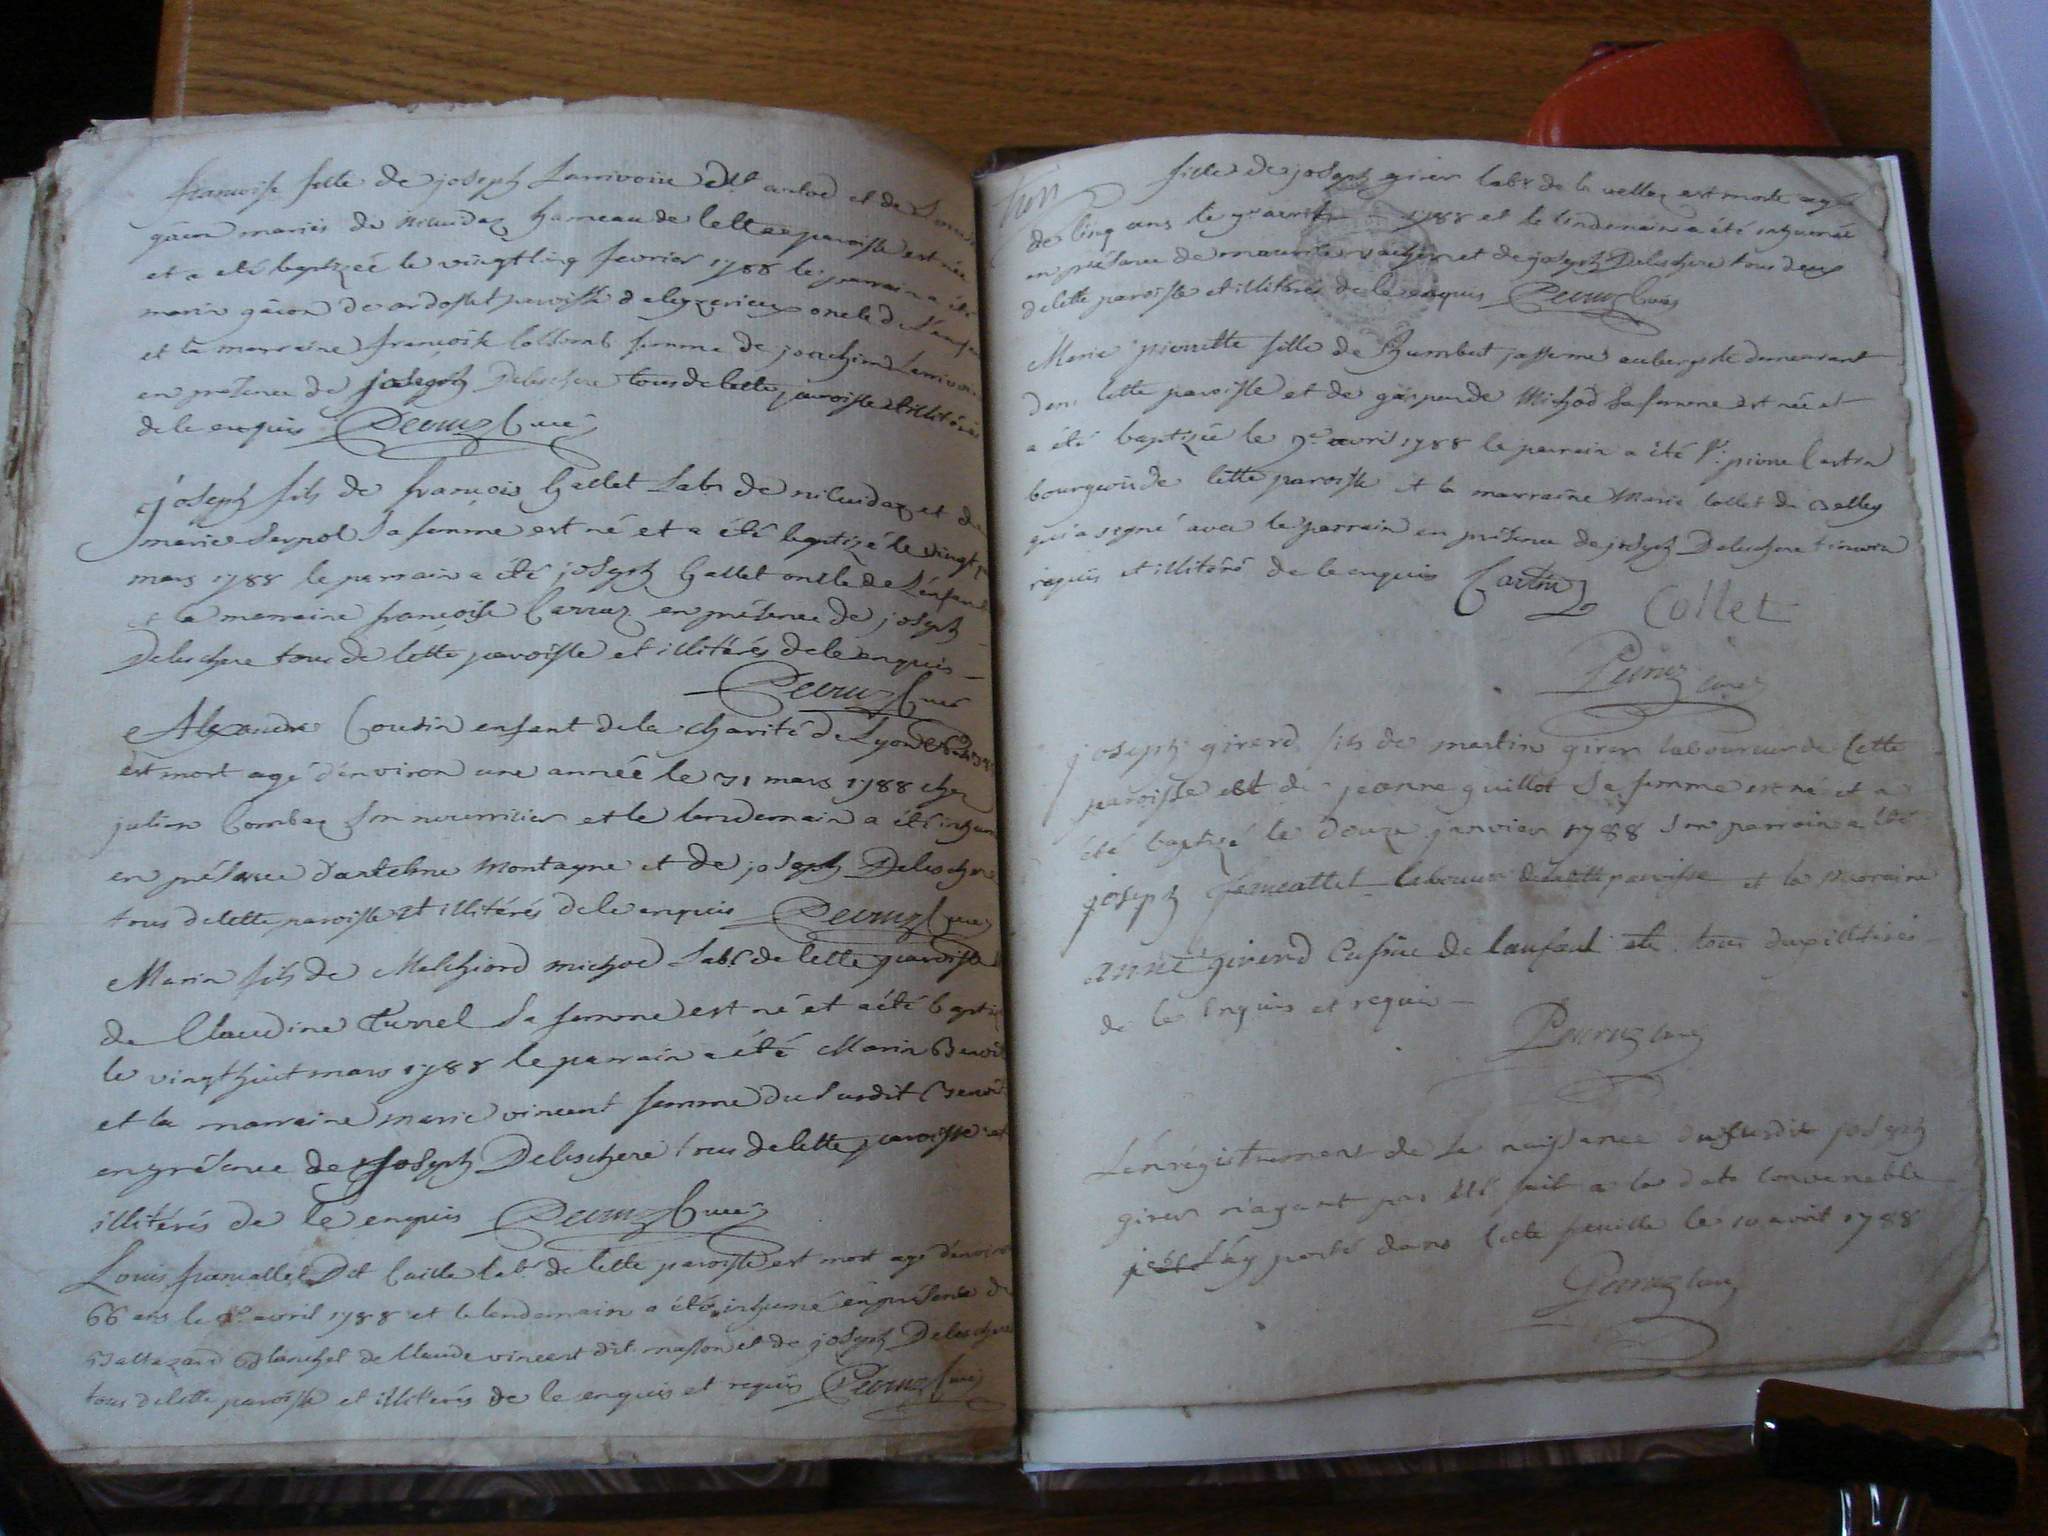 francoise fille de joseph Larrivoire et de
gaion mariés de nicuidaz hameau de cette paroisse est née
et a été baptizeé le vingtcinq fevrier 1788 le parrain a été
marin gaion de paroisse oncle de l'enfan
et la marraine francoise collomb femme de joachim Larrivoire
en présence de joseph Deleschere tous de cette paroisse et illitérés
de ce enquis Perruz Curé
joseph fils de françois Gallet Labr de nicuidaz et de
marie Serpol Sa femme est né et a été baptizé le vingt
mars 1788 le parrain a été joseph Gallet oncle de L'enfan
et la marraine francoise Carruz en présence de joseph
Deleschere tous de cette paroisse et illitérés de ce enquis
Perruz Curé
Alexandre Cousin enfant de la charité de Lyon
est mort agé d'environ une année le 31 mars 1788 chez
julien Combaz Son nourricier et le lendemain a été inhumé
en présence d'antelme montagne et de joseph Deleschere
tous de cette paroisse et illitérés de ce enquis Perruz Curé
Marin fils de Melchiord michod Labr. de cette paroisse
de Claudine Turrel Sa femme est né et a été baptizé
le vingthuit mars 1788 le parrain a été Marin Benoit
et la marraine marie vincent femme du Susdit Benoit
en présence de joseph Deleschere tous de cette paroisse et
illitérés de ce enquis Perruz Curé
Louis francallet Dit Caille lab. de cette paroisse est mort agé d'environ
66 ans le avril 1788 et le lendemain a été inhumé en présence de
Baltazard Blanchet de Claude vincent dit masson et de joseph Deleschere
tous de cette paroisse et illitérés de ce enquis et requis Perruz Curé
fille de joseph girer labr de la vellaz est morte agée
de cinq ans le 9e avril 1788 et le lendemain a été inhumée
en présence de maurice vacher et de joseph Deleschere tous deux
de cette paroisse et illitérés de ce enquis Perruz Curé
Marie pierrette fille de Humbert jasserme aubergiste demeurant
dans cette paroisse et de gasparde Michod Sa femme est née et
a été baptizée le 9e avril 1788 le parrain a été Sr. pierre Cartin
bourgeois de cette paroisse et la marraine Marie Collet de Belley
qui a signé avec le parrain en présence de joseph Deleschere temoin
requis et illitéré de ce enquis Cartin Collet
Perruz curé
joseph girerd fils de martin girer laboureur de Cette
paroisse et de jeanne guillot Sa femme est né et a
été baptizé le douze janvier 1788 Son parrain a été
joseph francallet laboureur de cette paroisse et la maraine
anne girerd Cusine de lanfant tous deux illitérés
de ce Enquis et requis
Perruz curé
L'enrégistrement de la naissance du susdit joseph
girer n'ayant pas été fait a la date Convenable
je l'ay porté dans cette feuille le 10 avril 1788
Perruz curé